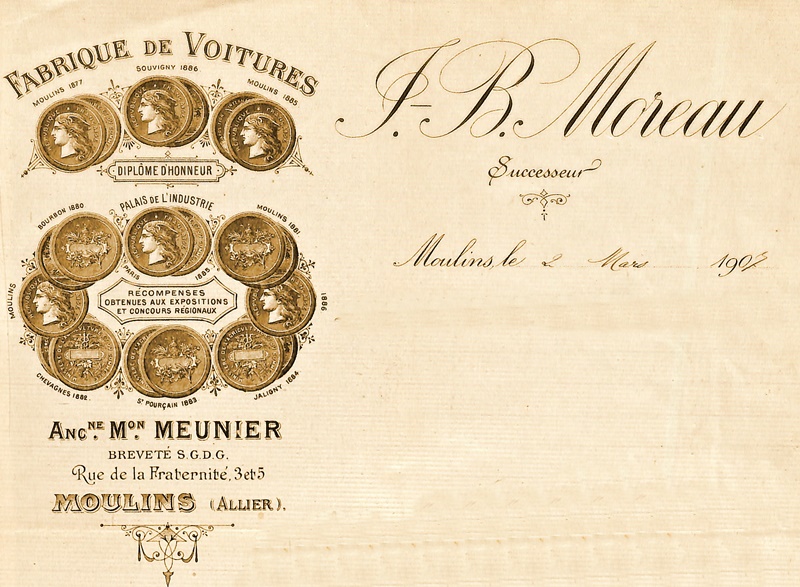 FABRIQUE DE VOITURES
MOULINS 1877
SOUVIGNY 1886
MOULINS 1885
DIPLÔME D'HONNEUR
PALAIS DE L'INDUSTRIE
BOURBON 1880
MOULINS 1881
PARIS 1885
MOULINS 1886
RÉCOMPENSES
OBTENUES AUX EXPOSITIONS
ET CONCOURS RÉGIONAUX
CHEVAGNES 1882
ST POURÇAIN 1883
JALIGNY 1884
ANCNE. MON. MEUNIER
BREVETÉ S.G.D.G.
Rue de la Fraternité, 3 et 5
MOULINS (ALLIER).
J.-B. Moreau
Successeur
Moulins, le 2 Mars 1907